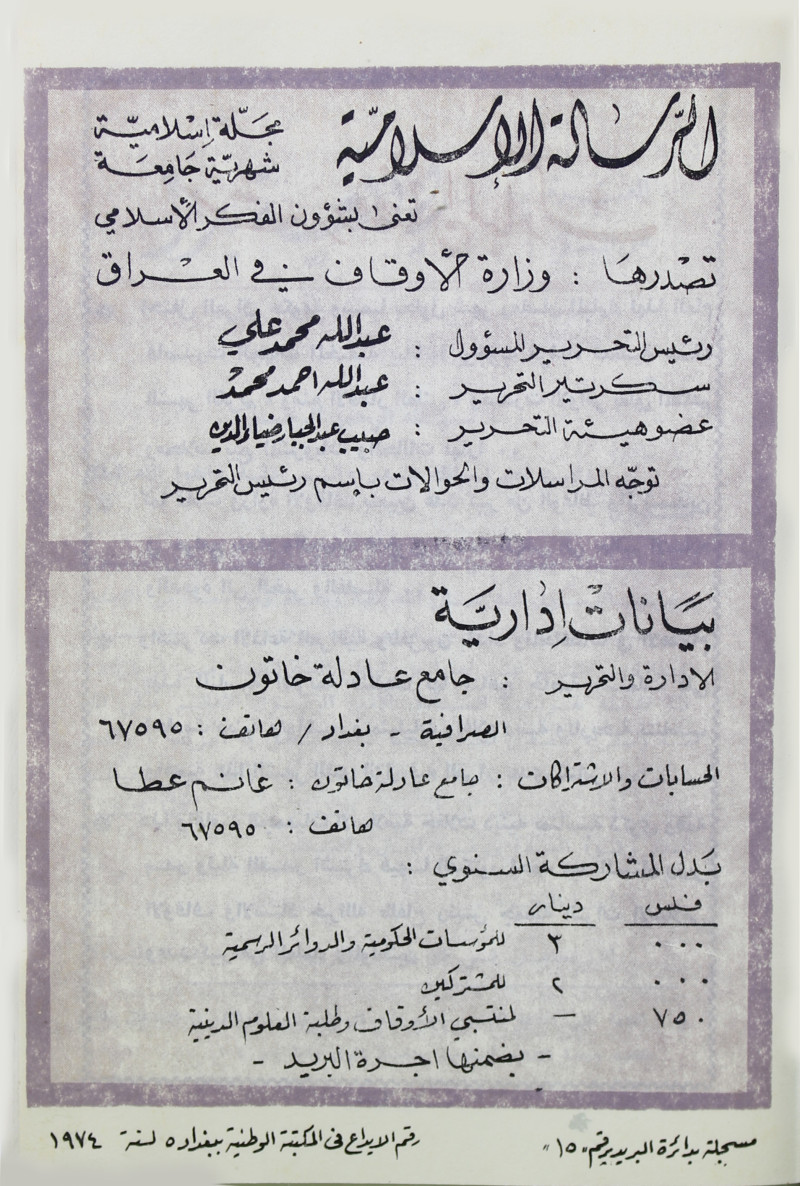 الرسالة الإسلامية
مجلّة إسلاميّة
شهريّة جَامِعَة
تعنى بشؤون الفكر الأسلامي
تصْدرهَا : وزارة الأوقاف في العراق
رئيس التحرير المسؤول : عبدالله محمد علي
سكرتير التحرير : عبدالله احمد محمد
عضو هيئة التحرير : صبيب عبدالجبار ضياءالدين
توجّه المراسلات والحوالات بإسم رئيس التحرير
بيَانات إداريّة
الادارة والتحرير : جامع عادلة خاتون
الصرافية - بغداد / هاتف : ٦٧٥٩٥
الحسابات والاشتراكات : جامع عادلة خاتون : غانم عطا
هاتف : ٦٧٥٩٥
بَدل المشاركة السنوي :
فلس دينار
٠٠٠ ٣ للمؤسسات الحكومية والدوائر الرسمية
٠٠٠ ٢ للمشتركين
٧٥٠ — لمنتسبي الأوقاف وطلبة العلوم الدينية
- بضمنها اجرة البريد -
مسجلة بدائرة البريد برقم "١٥"
رقم الايداع في المكتبة الوطنية ببغداد ٥ لسنة ١٩٧٤